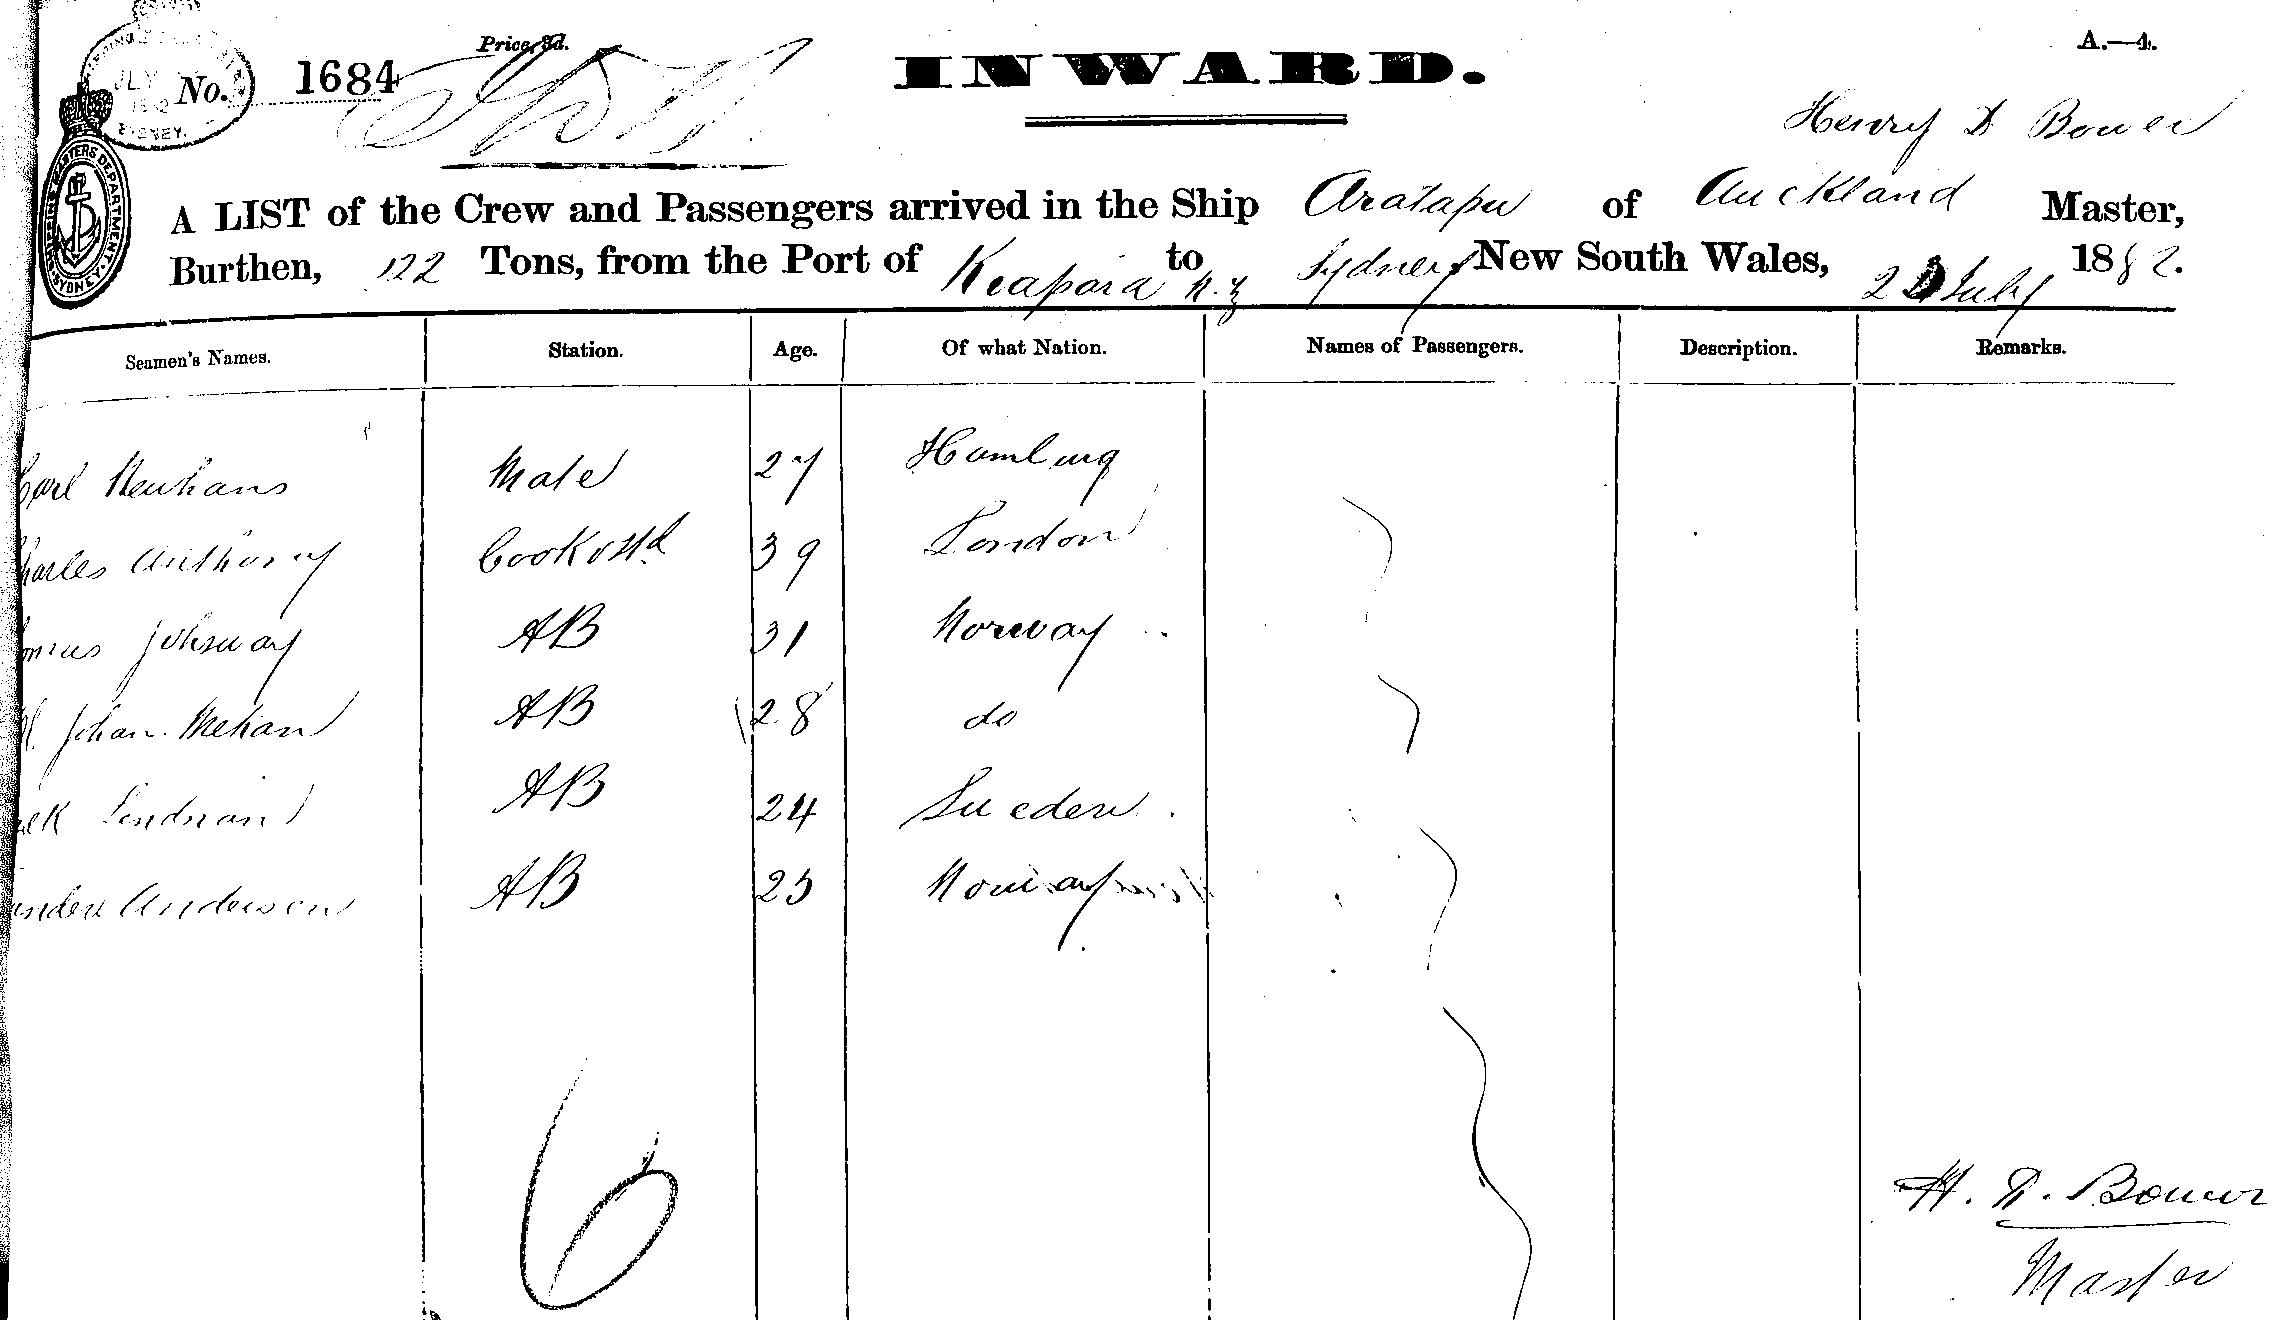 Price, 3d.
A.—4.
No. 1684
INWARD.
JULY
SYDNEY.
Henry D Bower
SHIPPING MASTERS DEPARTMENT
SYDNEY
A LIST of the Crew and Passengers arrived in the Ship Aratapu of Auckland Master,
Burthen, 122 Tons, from the Port of Kiapara N.Z to Sydney New South Wales, 2 July 1882.
Seamen's Names. Station. Age. Of what Nation. Names of Passengers. Description. Remarks.
Carl Neuhans Mate 27 Hamburg
Charles Anthony Cook & Std 39 London
Johsway AB 31 Norway
Johan Mekan AB 28 do
Lindman AB 24 Sueden
Anderson AB 25 Norway
6
H. D. Bower
Master